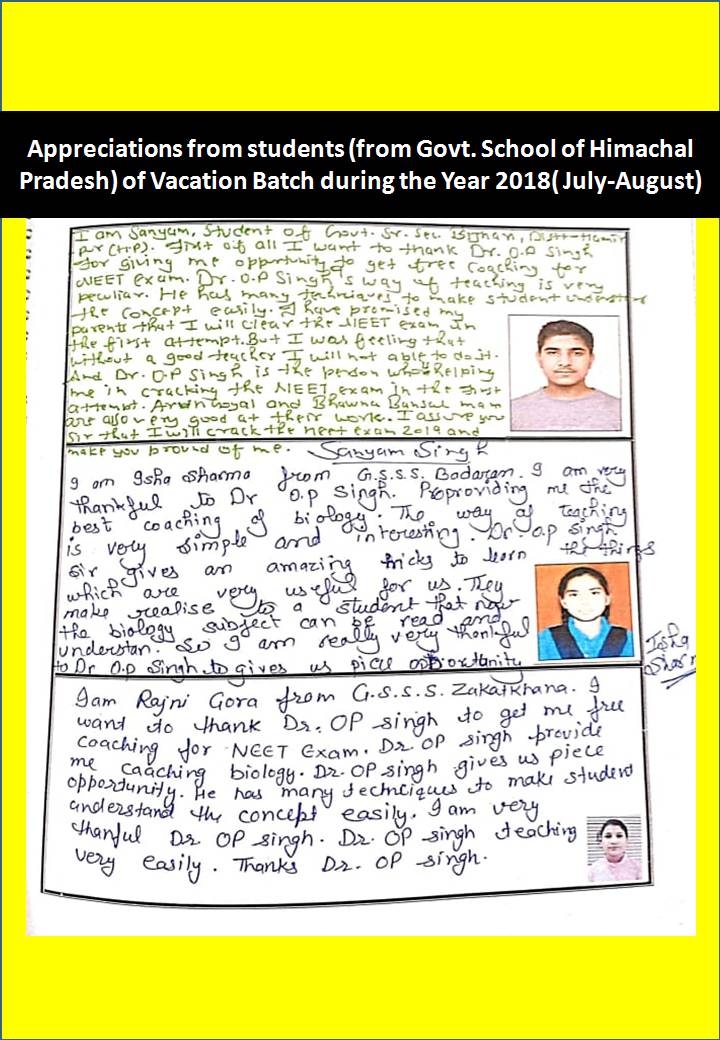 Appreciations from students (from Govt. School of Himachal
Pradesh) of Vacation Batch during the Year 2018( July-August)
I am Sanyam, Student of Govt. Sr. Sec. Distt-Hamir
pur (H.P). First of all I want to thank Dr. O.P Singh
for giving me opportunity to get free coaching for
NEET exam. Dr. O.P Singh's way of teaching is very
peculiar. He has many techniques to make student understand
the concept easily. I have promised my
parents that I will clear the NEET exam in
the first attempt. But I was feeling that
without a good teacher I will not able to do it.
And Dr. O.P Singh is the person who helping
me in cracking the NEET exam in the first
attempt. Goyal and Bhawna Bansal mam
are also very good at their work. I assure you
sir that I will crack the neet exam 2019 and
make you pround of me. Sanyam Singh
I am Isha Sharma from G.S.S.S. Badaran. I am very
thankful to Dr O.p Singh. Proproviding me the
best coaching of biology. The way of teaching
is very simple and interesting. Dr. O.p singh
sir gives an amazing tricks to learn the things
which are very useful for us. They
make realise to a student that now
the biology subject can be read and
understan. So I am really very thankful
to Dr O.p Singh to gives us piece opportunity
Isha
Sharma
I am Rajni Gora from G.S.S.S. Zakatkhana. I
want to thank Dr. OP singh to get me free
coaching for NEET Exam. Dr. OP singh provide
me caaching biology. Dr. OP singh gives us piece
opportunity. He has many techciques to make student
understand the concept easily. I am very
thanful Dr OP singh. Dr. OP singh teaching
very easily. Thanks Dr. OP singh.